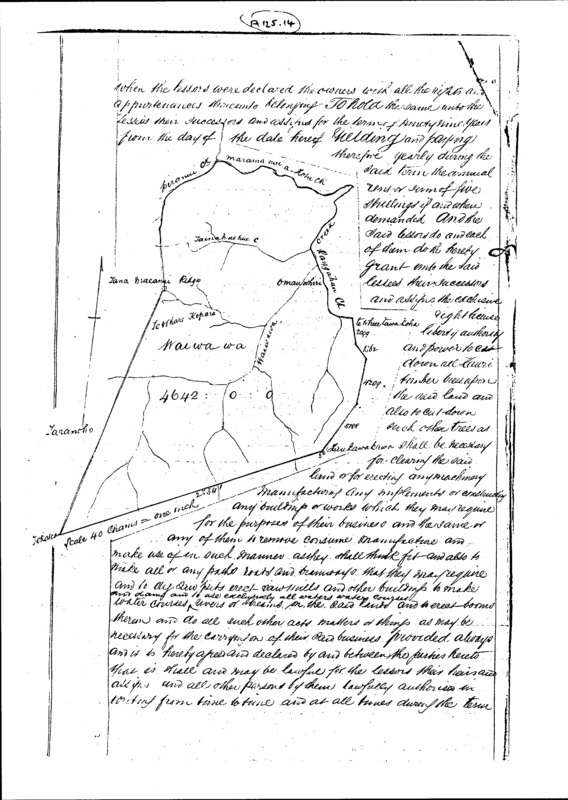 A 125.14
when the lessors were declared the owners with all the rights and
appurtenances thereunto belonging To hold the same unto the
lessees their successors and assigns for the term of Ninety nine Years
from the day of the date hereof Yielding and paying
therefore yearly during the
said term the annual
rent or sum of five
shillings if and when
demanded And the
said lessors do and each
of them do th hereby
Grant unto the said
lessees their successors
and assigns the exclusive
right license
liberty authority
and power to cut
down all Kauri
timber trees upon
the said land and
also to cut down
such other trees as
shall be necessary
for clearing the said
land or for erecting any machinery
manufacturing any implements or constructing
any buildings or works which they may require
for the purposes of their business and the same or
any of them to remove consume manufacture and
make use of in such manner as they shall think fit and also to
make all or any paths roads and tramways that they may require
and to dig saw pits erect saw mills and other buildings to make
and dams and to use exclusively all waters water courses
water courses rivers or streams on the said land and to erect booms
therein and do all such other acts matters or things as may be
necessary for the carrying on of their said business provided always
and is hereby agreed and declared by and between the parties hereto
that is shall and may be lawful for the lessors their heirs and
assigns and all other persons by them lawfully authorised in
writing from time to time and at all times during the term
marama nui a-Hotu Ck
Creek
Tana Macanui Ridge
Omauhuri
Waiwawa
Wai wa wa
4642 : 0 : 0
Tarancho
Scale 40 Chains = one inch